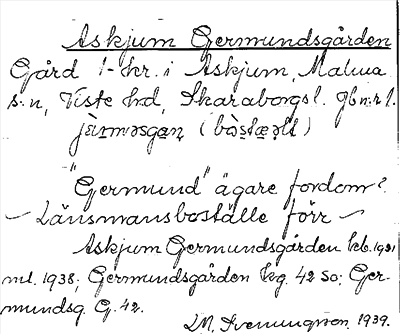 Askjum Germundsgården
Gård 1 kr. i Askjum, Malma
s:n, Viste hd, Skaraborgs l. Jb nr 1.
jær̃məsgaṇ (bòstæḷḷt)
"Germund" ägare fordom?
~ Länsmansboställe förr ~
Askjum Germundsgården kb. 1931
ml. 1938; Germundsgården kg. 42 So; Ger-
mundsg G. 42.
1939.